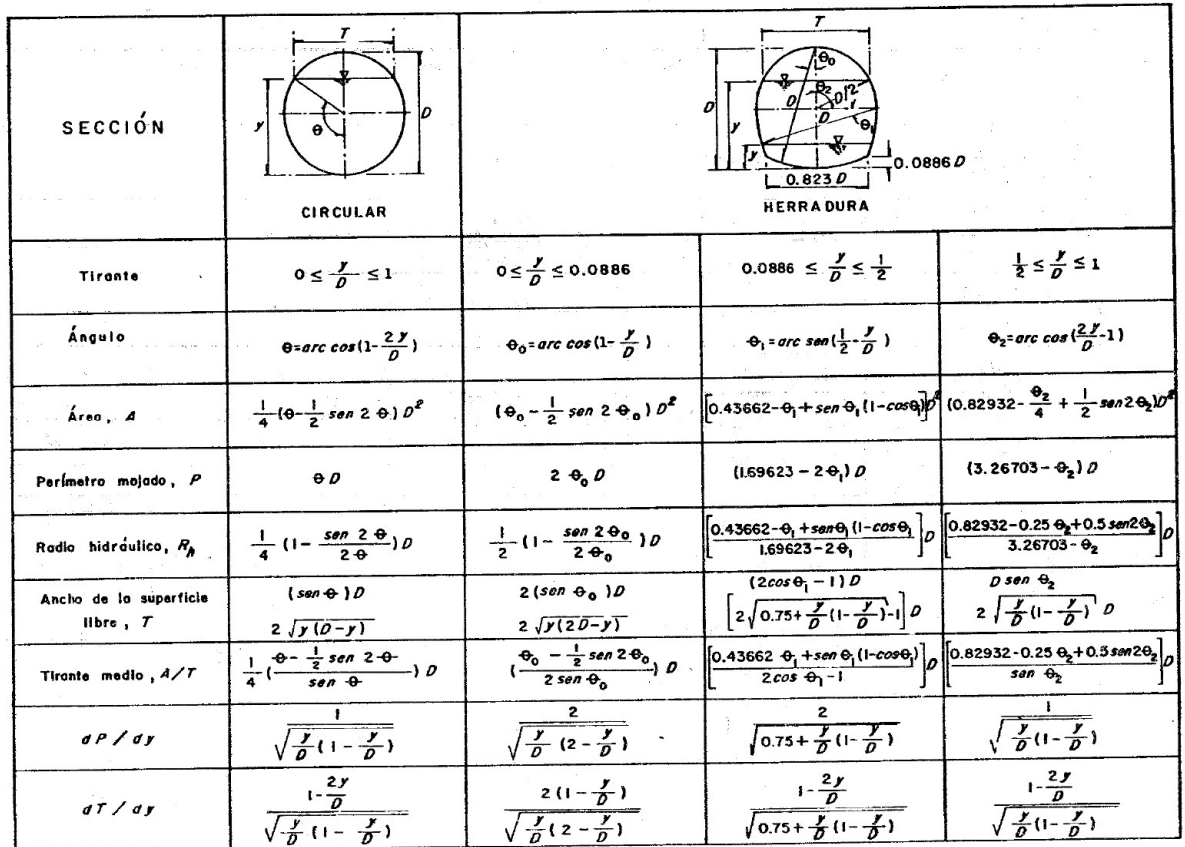 SECCIÓN
T
y
θ
D
CIRCULAR
T
D
y
y
θ₀
θ₂
D/2
D
D
θ₁
0.0886 D
0.823 D
HERRADURA
Tirante
0 ≤ y/D ≤ 1
0 ≤ y/D ≤ 0.0886
0.0886 ≤ y/D ≤ 1/2
1/2 ≤ y/D ≤ 1
Ángulo
θ=arc cos(1-2y/D)
θ₀=arc cos(1-y/D)
θ₁=arc sen(1/2-y/D)
θ₂=arc cos(2y/D-1)
Área, A
1/4(θ-1/2 sen 2θ)D²
(θ₀-1/2 sen 2θ₀)D²
[0.43662-θ₁+sen θ₁(1-cosθ₁)]D²
(0.82932-θ₂/4+1/2 sen2θ₂)D²
Perímetro mojado, P
θD
2θ₀D
(1.69623-2θ₁)D
(3.26703-θ₂)D
Radio hidráulico, Rh
1/4(1-sen 2θ/2θ)D
1/2(1-sen 2θ₀/2θ₀)D
[0.43662-θ₁+senθ₁(1-cosθ₁/1.69623-2θ₁]D
[0.82932-0.25θ₂+0.5sen2θ₂/3.26703-θ₂]D
Ancho de la superficie
libre, T
(sen θ)D
2√y(D-y)
2(sen θ₀)D
2√y(2D-y)
(2cosθ₁-1)D
[2√0.75+y/D(1-y/D)-1]D
D sen θ₂
2√y/D(1-y/D) D
Tirante medio, A/T
1/4(θ-1/2 sen 2θ/sen θ)D
(θ₀-1/2 sen 2θ₀/2 sen θ₀)D
[0.43662 θ₁+sen θ₁(1-cosθ₁)/2cos θ₁-1]D
[0.82932-0.25θ₂+0.5sen2θ₂/san θ₂]D
dP/dy
1/√y/D(1-y/D)
2/√y/D(2-y/D)
2/√0.75+y/D(1-y/D)
1/√y/D(1-y/D)
dT/dy
1-2y/D/√y/D(1-y/D)
2(1-y/D)/√y/D(2-y/D)
1-2y/D/√0.75+y/D(1-y/D)
1-2y/D/√y/D(1-y/D)